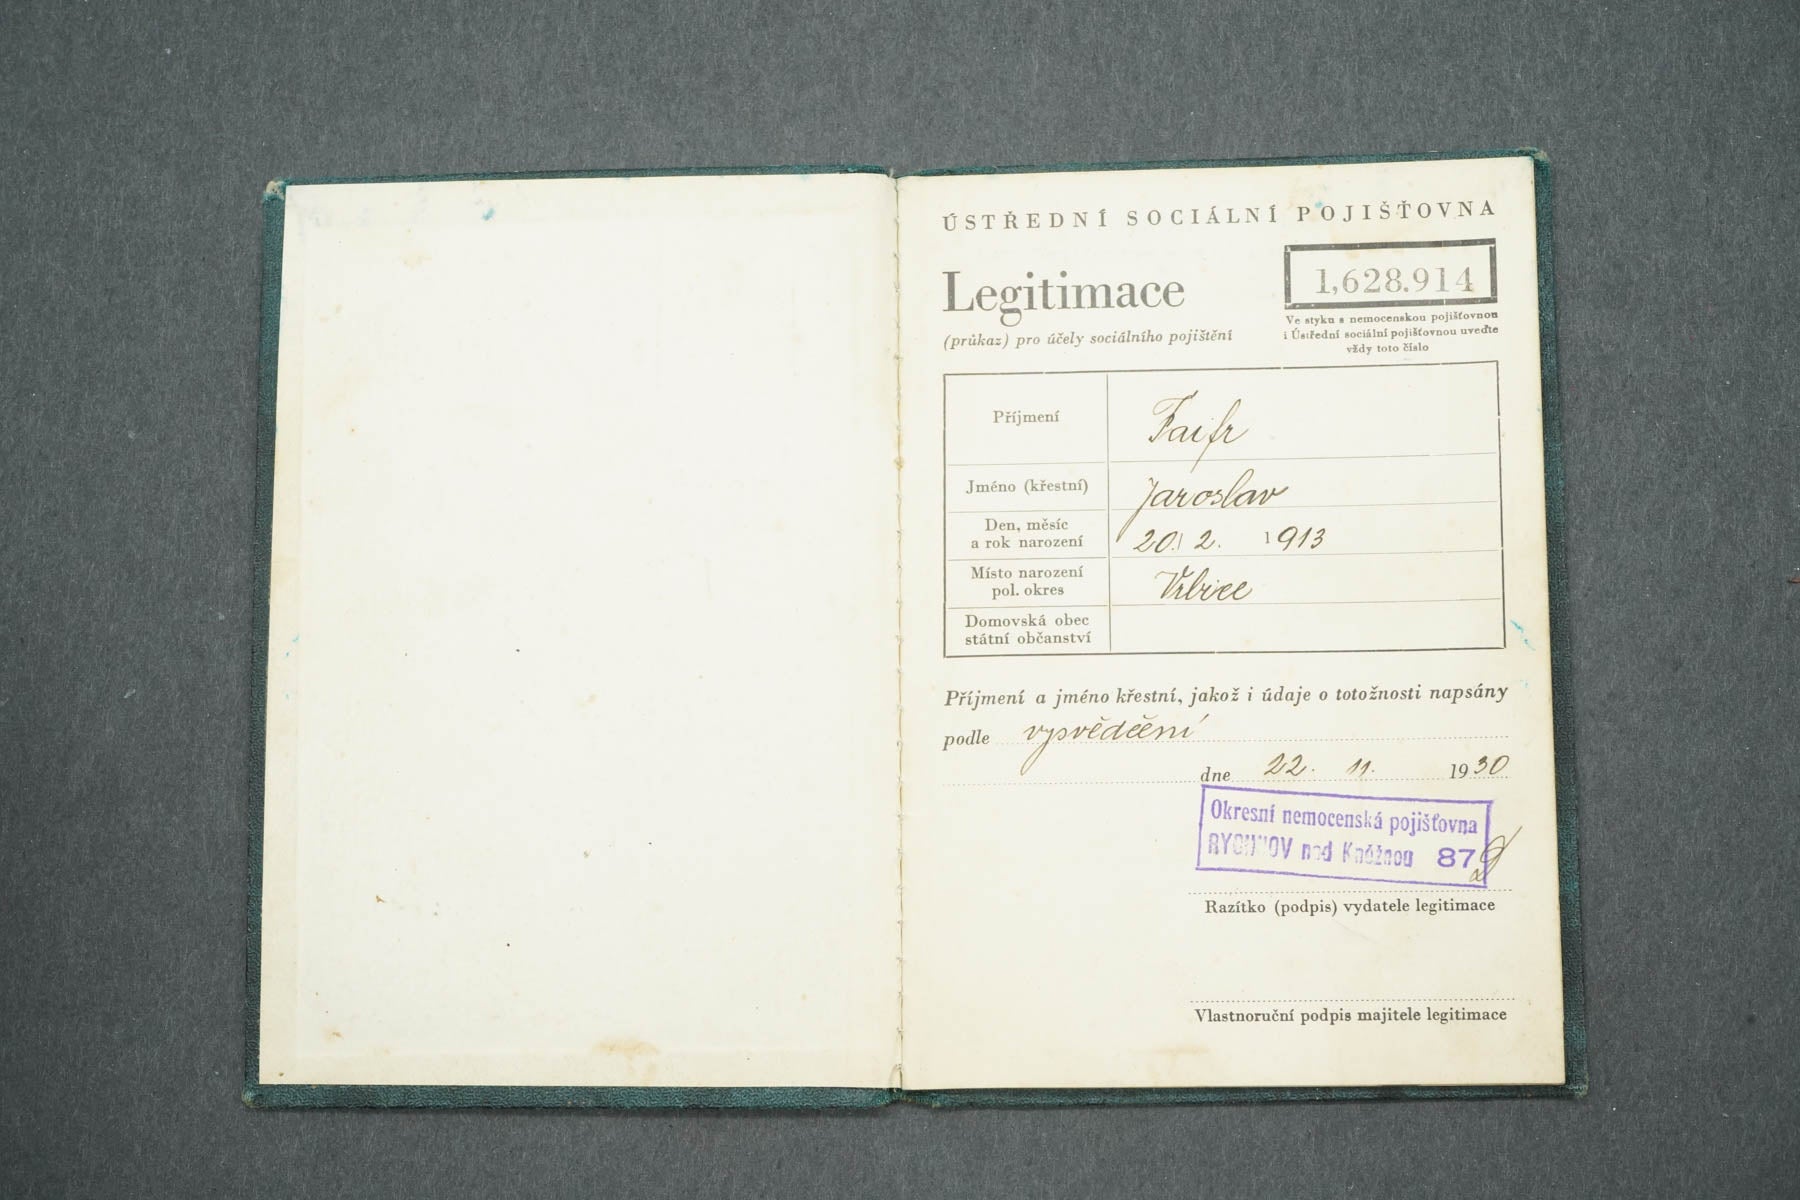 ÚSTŘEDNÍ SOCIÁLNÍ POJIŠŤOVNA
Legitimace
(průkaz) pro účely sociálního pojištění
1,628.914
Ve styku s nemocenskou pojišťovnou
i Ústřední sociální pojišťovnou uveďte
vždy toto číslo
Příjmení
Faifr
Jméno (křestní)
Jaroslav
Den, měsíc
a rok narození
20. 2. 1913
Místo narození
pol. okres
Vrbice
Domovská obec
státní občanství
Příjmení a jméno křestní, jakož i údaje o totožnosti napsány
podle vysvědčení
dne 22. 11. 1930
Okresní nemocenská pojišťovna
RYCHNOV nad Kněžnou 87
Razítko (podpis) vydatele legitimace
Vlastnoruční podpis majitele legitimace